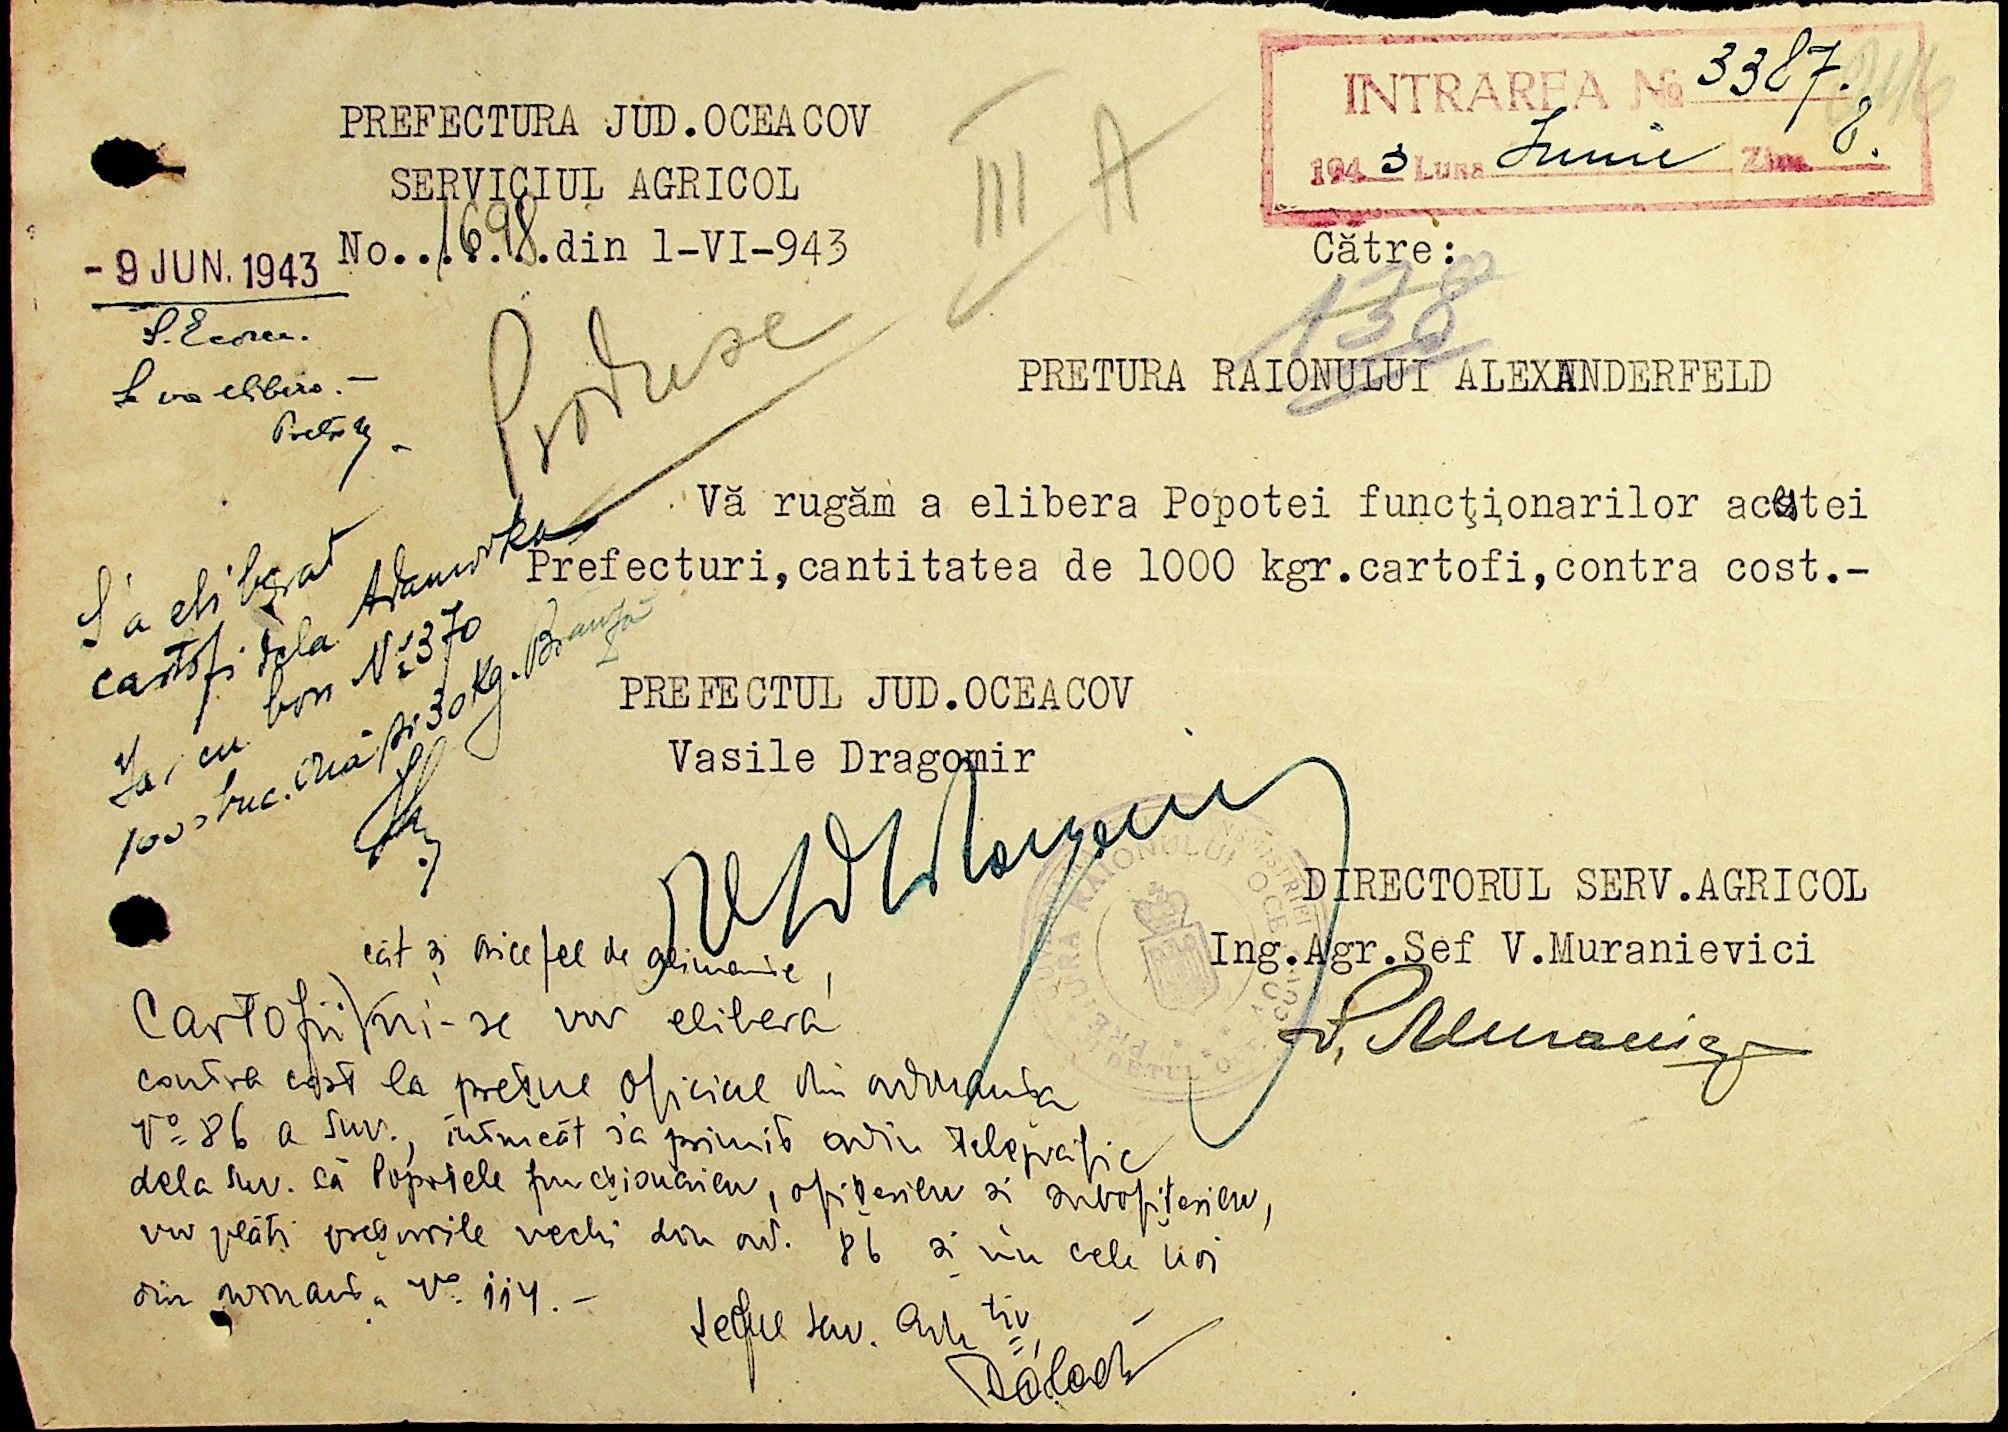 PREFECTURA JUD.OCEACOV
SERVICIUL AGRICOL
No...1698.din 1-VI-943
INTRAREA № 3387.
1943 Luna Iunie Ziua 8.
III A
- 9 JUN. 1943
S. Econ.
Se va elibera.-
Pretor
Către:
138
PRETURA RAIONULUI ALEXANDERFELD
Produse
Vă rugăm a elibera Popotei funcţionarilor acestei
Prefecturi,cantitatea de 1000 kgr.cartofi,contra cost.-
S'a eliberat
cartofi dela Adamovka
Ia, cu bon № 370
1000 buc. ouă și 30 kg. Brânză
PREFECTUL JUD.OCEACOV
Vasile Dragomir
DIRECTORUL SERV.AGRICOL
Ing.Agr.Sef V.Muranievici
cât și orice fel de alimente,
Cartofii ni-se vor eliberá
contra cost la prețul oficial din ordonanța
No 86 a Guv., întrucât s'a primit ordin telegrafic
dela Guv. că Popotele funcționarilor, ofițerilor și subofițerilor,
vor plăti prețurile vechi din ord. 86 și nu cele noi
din ordonanța No. 114.-
Șeful Serv. Adm tiv,